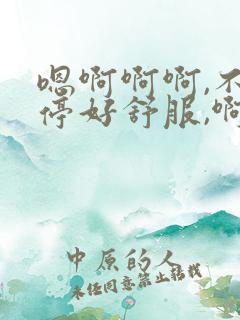 嗯啊啊啊,不
停好舒服,啊
中原的人
未经同意禁止转载